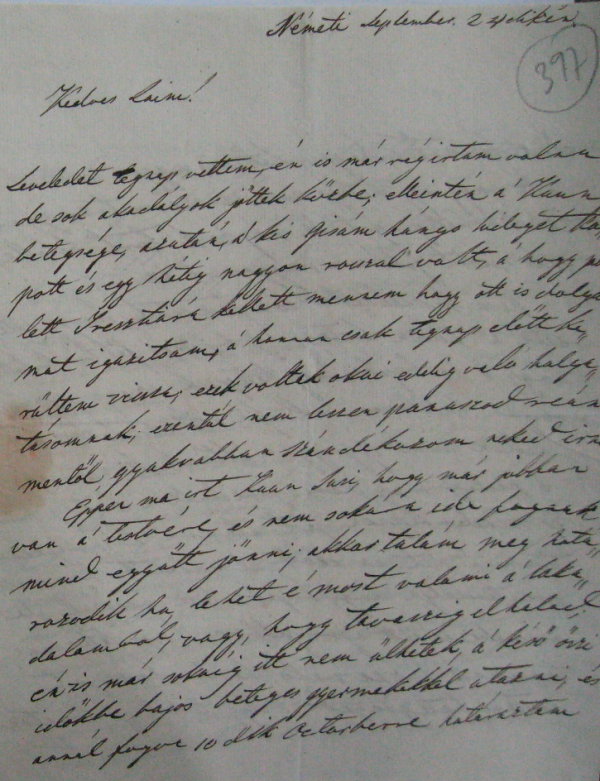 Németi September 24dikén
397
Kedves Laim!
Leveledet tegnap vettem, én is már rég irtam volna
de sok akadályok jöttek közbe; elleintén a' Kuun
betegsége, azután, a' kis Gizám hányo hideget ka„
pott és egy hétig nagyon rosszul volt, a' hogy jo
lett Tresztiára kellett mennem hogy ott is dolga
mat igazitsam, a' honnan csak tegnap elött ke„
rültem vissza; ezek voltak okai eddig valo halga„
tásomnak; ezentúl nem leszen panaszod reám
mentöl gyakrabban szándékozom neked irni
Eppen ma irt Kuun Susi, hogy már jobban
van a' testvére, és nem soká ide fognak
mind együtt jönni; akkor talám meg hatá„
rozodik ha, lehet é most valami a' laka„
dalamból, vagy, hogy tavaszig el halad.
én is már sokáig itt nem ülhetek, a' késö öszi
idökbe bajos beteges gyermekekkel utazni, és
annál fogva 10dik Octorberre határoztam